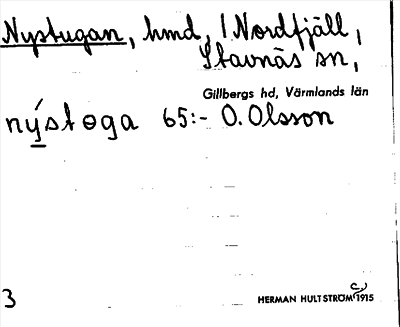 Nystugan, hmd, i Nordfjäll,
Stavnäs sn,
Gillbergs hd, Värmlands län
nýstoga 65:- O. Olsson
3
HERMAN HULTSTRÖM c.) 1915